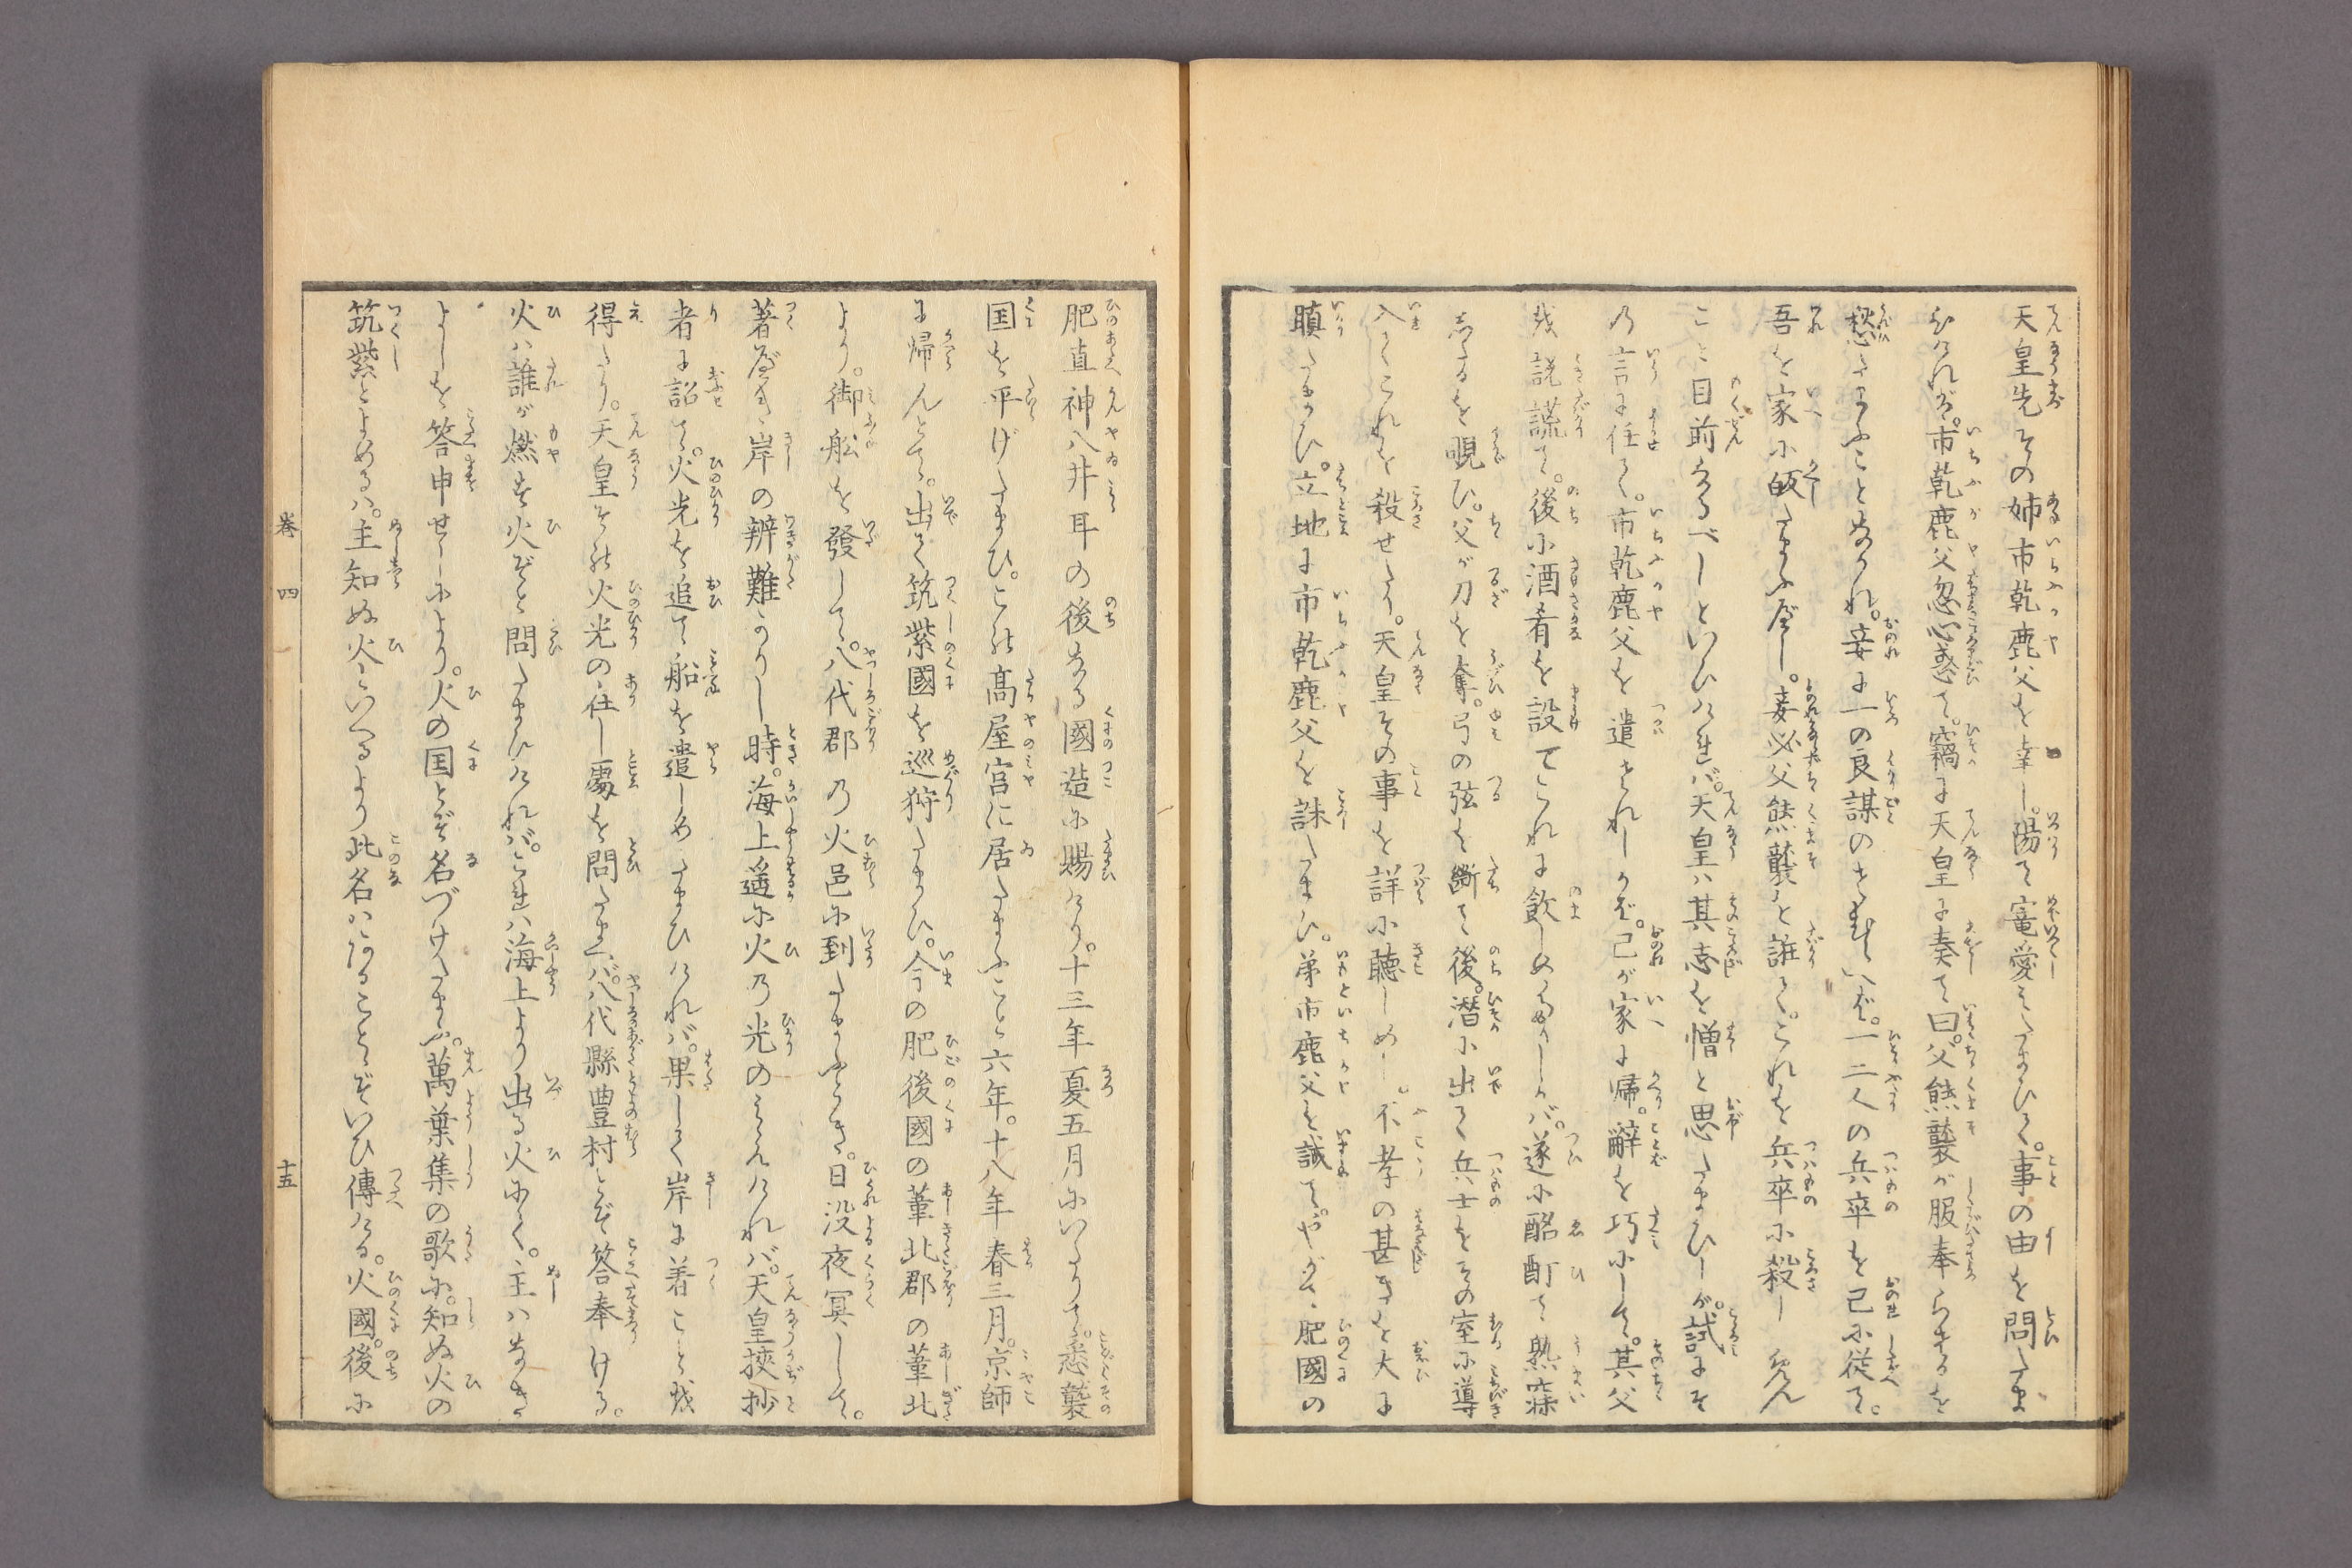 天皇先その姉市乾鹿父を幸し。陽て寵愛したまひて。事の由を問たま
ひければ。市乾鹿父忽心惑て。竊に天皇に奏て曰。父熊襲が服奉らざるを
愁たまふことなかれ。妾に一の良謀のさむらへば。一二人の兵卒を己に従て。
吾を家に皈たまふべし。妾必父熊襲を誰て。これを兵卒に殺し
こと目前なるべしといひければ。天皇ハ其志を憎と思たまひしが。試にそ
の言に任て。市乾鹿父を遣されしかば。己が家に帰。辭を巧にして。其父
を説謊て。後に酒肴を設てこれに飲しめ バ。遂に酩酊て熟寐
したるを覗ひ。父が刀を奪。弓の弦を断て後。潜に出て兵士をその室に導
入てこれを殺せり。天皇その事を詳に聴しめし。不孝の甚きを大に
瞋たまひ。立地に市乾鹿父を誅たまひ。弟市鹿父を誡て。やがて肥國の
肥直神八井耳の後なる國造に賜けり。十三年夏五月にいたりて。悉襲
国を平げたまひ。これ高屋宮に居たまふこと六年。十八年春三月。京師
に帰んとて。出て筑紫國を巡狩たまひ。今の肥後國の葦北郡の葦北
より。御船を發して。八代郡の火邑に到たまふとき。日没夜冥して。
著べき岸の辨難かりし時。海上遥に火の光のみえければ。天皇挾抄
者に詔て。火光を追て船を遣しめたまひければ。果して岸に着ことを
得たり。天皇それ火光の在し處を問たまへバ。八代縣豊村とぞ答奉ける。
火ハ誰が燃せ火ぞと問たまひければ。これハ海上より出る火にて。主ハなき
よしを答申せしにより。火の国とぞ名づけたまふ。萬葉集の歌に。知ぬ火の
筑紫とよめるハ。主知ぬ火といへるより此名ハあることとぞいひ傳ける。火國。後に
巻四
十五